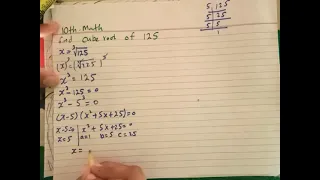 10th Math
find cube root of 125
x = ∛125
(x)³ = (∛125)³
x³ = 125
x³ - 125 = 0
x³ - 5³ = 0
(x-5)(x²+5x+25)=0
x-5=0 | x²+5x+25=0
x=5 | a=1 b=5 c=25
x =
5 | 125
5 | 25
5 | 5
1